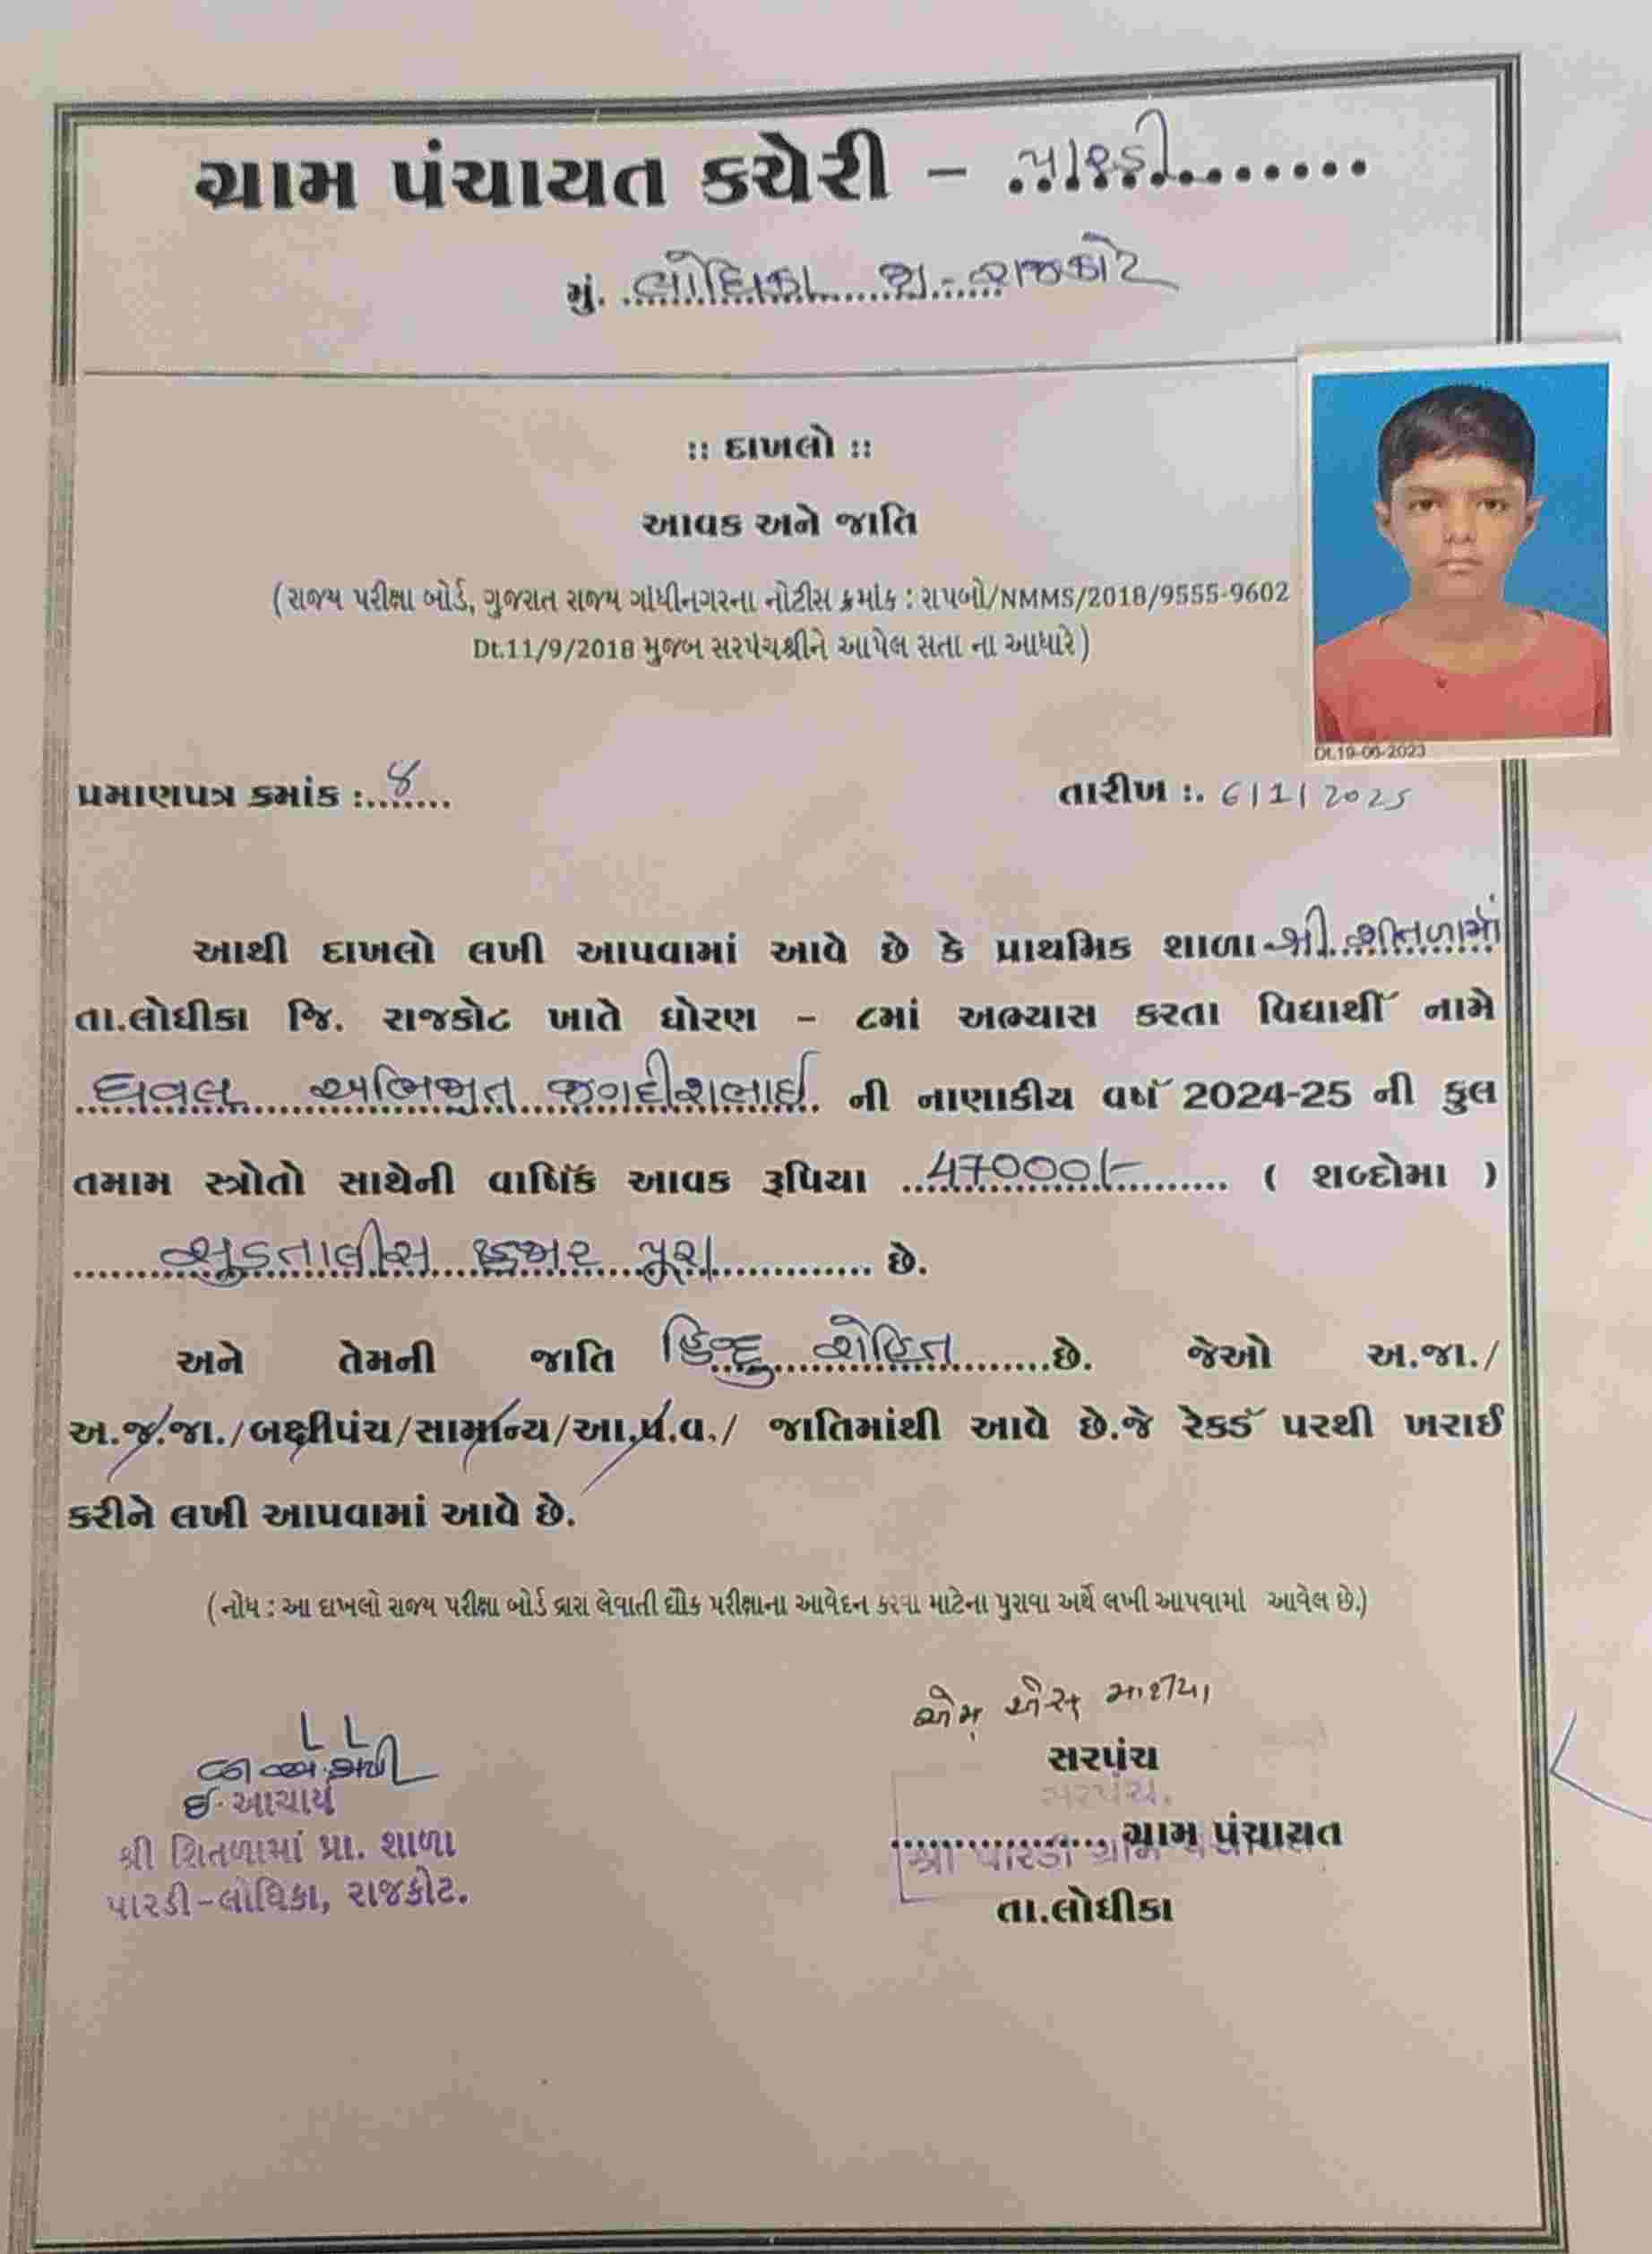 ગ્રામ પંચાયત કચેરી – પારડી
મું. લોધિકા જી-રાજકોટ
:: દાખલો ::
આવક અને જાતિ
(રાજ્ય પરીક્ષા બોર્ડ, ગુજરાત રાજ્ય ગાંધીનગરના નોટીસ ક્રમાંક : રાપબો/NMMS/2018/9555-9602
Dt.11/9/2018 મુજબ સરપંચશ્રીને આપેલ સતા ના આધારે)
Dt.19-06-2023
પ્રમાણપત્ર ક્રમાંક :. 8
તારીખ :. 6/1/2025
આથી દાખલો લખી આપવામાં આવે છે કે પ્રાથમિક શાળા શ્રી શીતળામાં
તા.લોધીકા જિ. રાજકોટ ખાતે ધોરણ – ૮માં અભ્યાસ કરતા વિદ્યાર્થી નામે
ધવલ અભિજીત જગદીશભાઈ ની નાણાકીય વર્ષ 2024-25 ની કુલ
તમામ સ્ત્રોતો સાથેની વાર્ષિક આવક રૂપિયા 47000/- ( શબ્દોમા )
સુડતાલીસ હજાર પૂરા છે.
અને તેમની જાતિ હિન્દુ રોહિત છે. જેઓ અ.જા./
અ.જ.જા./બક્ષીપંચ/સામાન્ય/આ.પ.વ./ જાતિમાંથી આવે છે.જે રેકર્ડ પરથી ખરાઈ
કરીને લખી આપવામાં આવે છે.
(નોધ : આ દાખલો રાજ્ય પરીક્ષા બોર્ડ દ્વારા લેવાતી શૈક્ષ પરીક્ષાના આવેદન કરવા માટેના પુરાવા અર્થે લખી આપવામાં આવેલ છે.)
એમ એસ મારીયા
સરપંચ
સરપંચ.
ગ્રામ પંચાયત
શ્રી પારડી ગ્રામ પંચાયત
તા.લોધીકા
ઈ. આચાર્ય
શ્રી શિતળામાં પ્રા. શાળા
પારડી-લોધિકા, રાજકોટ.